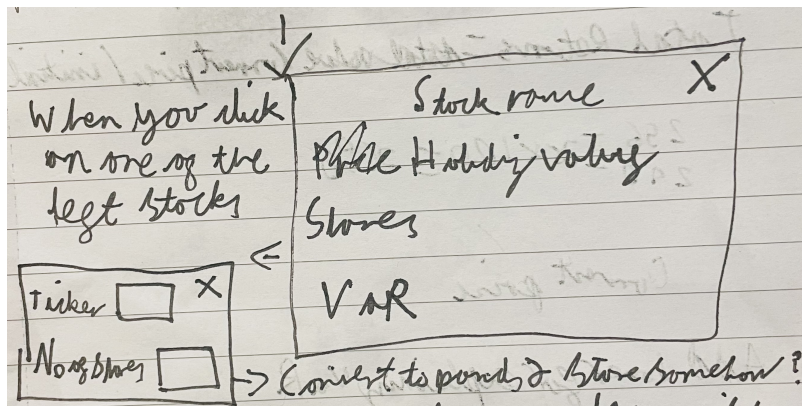 When you click
on one of the
left stocks
Stock name X
Holding value
Shares
VaR
Ticker X
No of shares
Convert to pounds & store somehow?